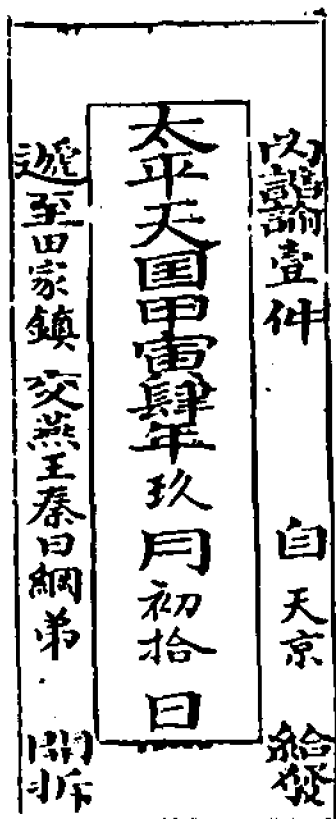 內誥諭壹件 自天京 給發
太平天囯甲寅肆年玖月初拾日
遞至田家鎮 交燕王秦日綱弟 開拆